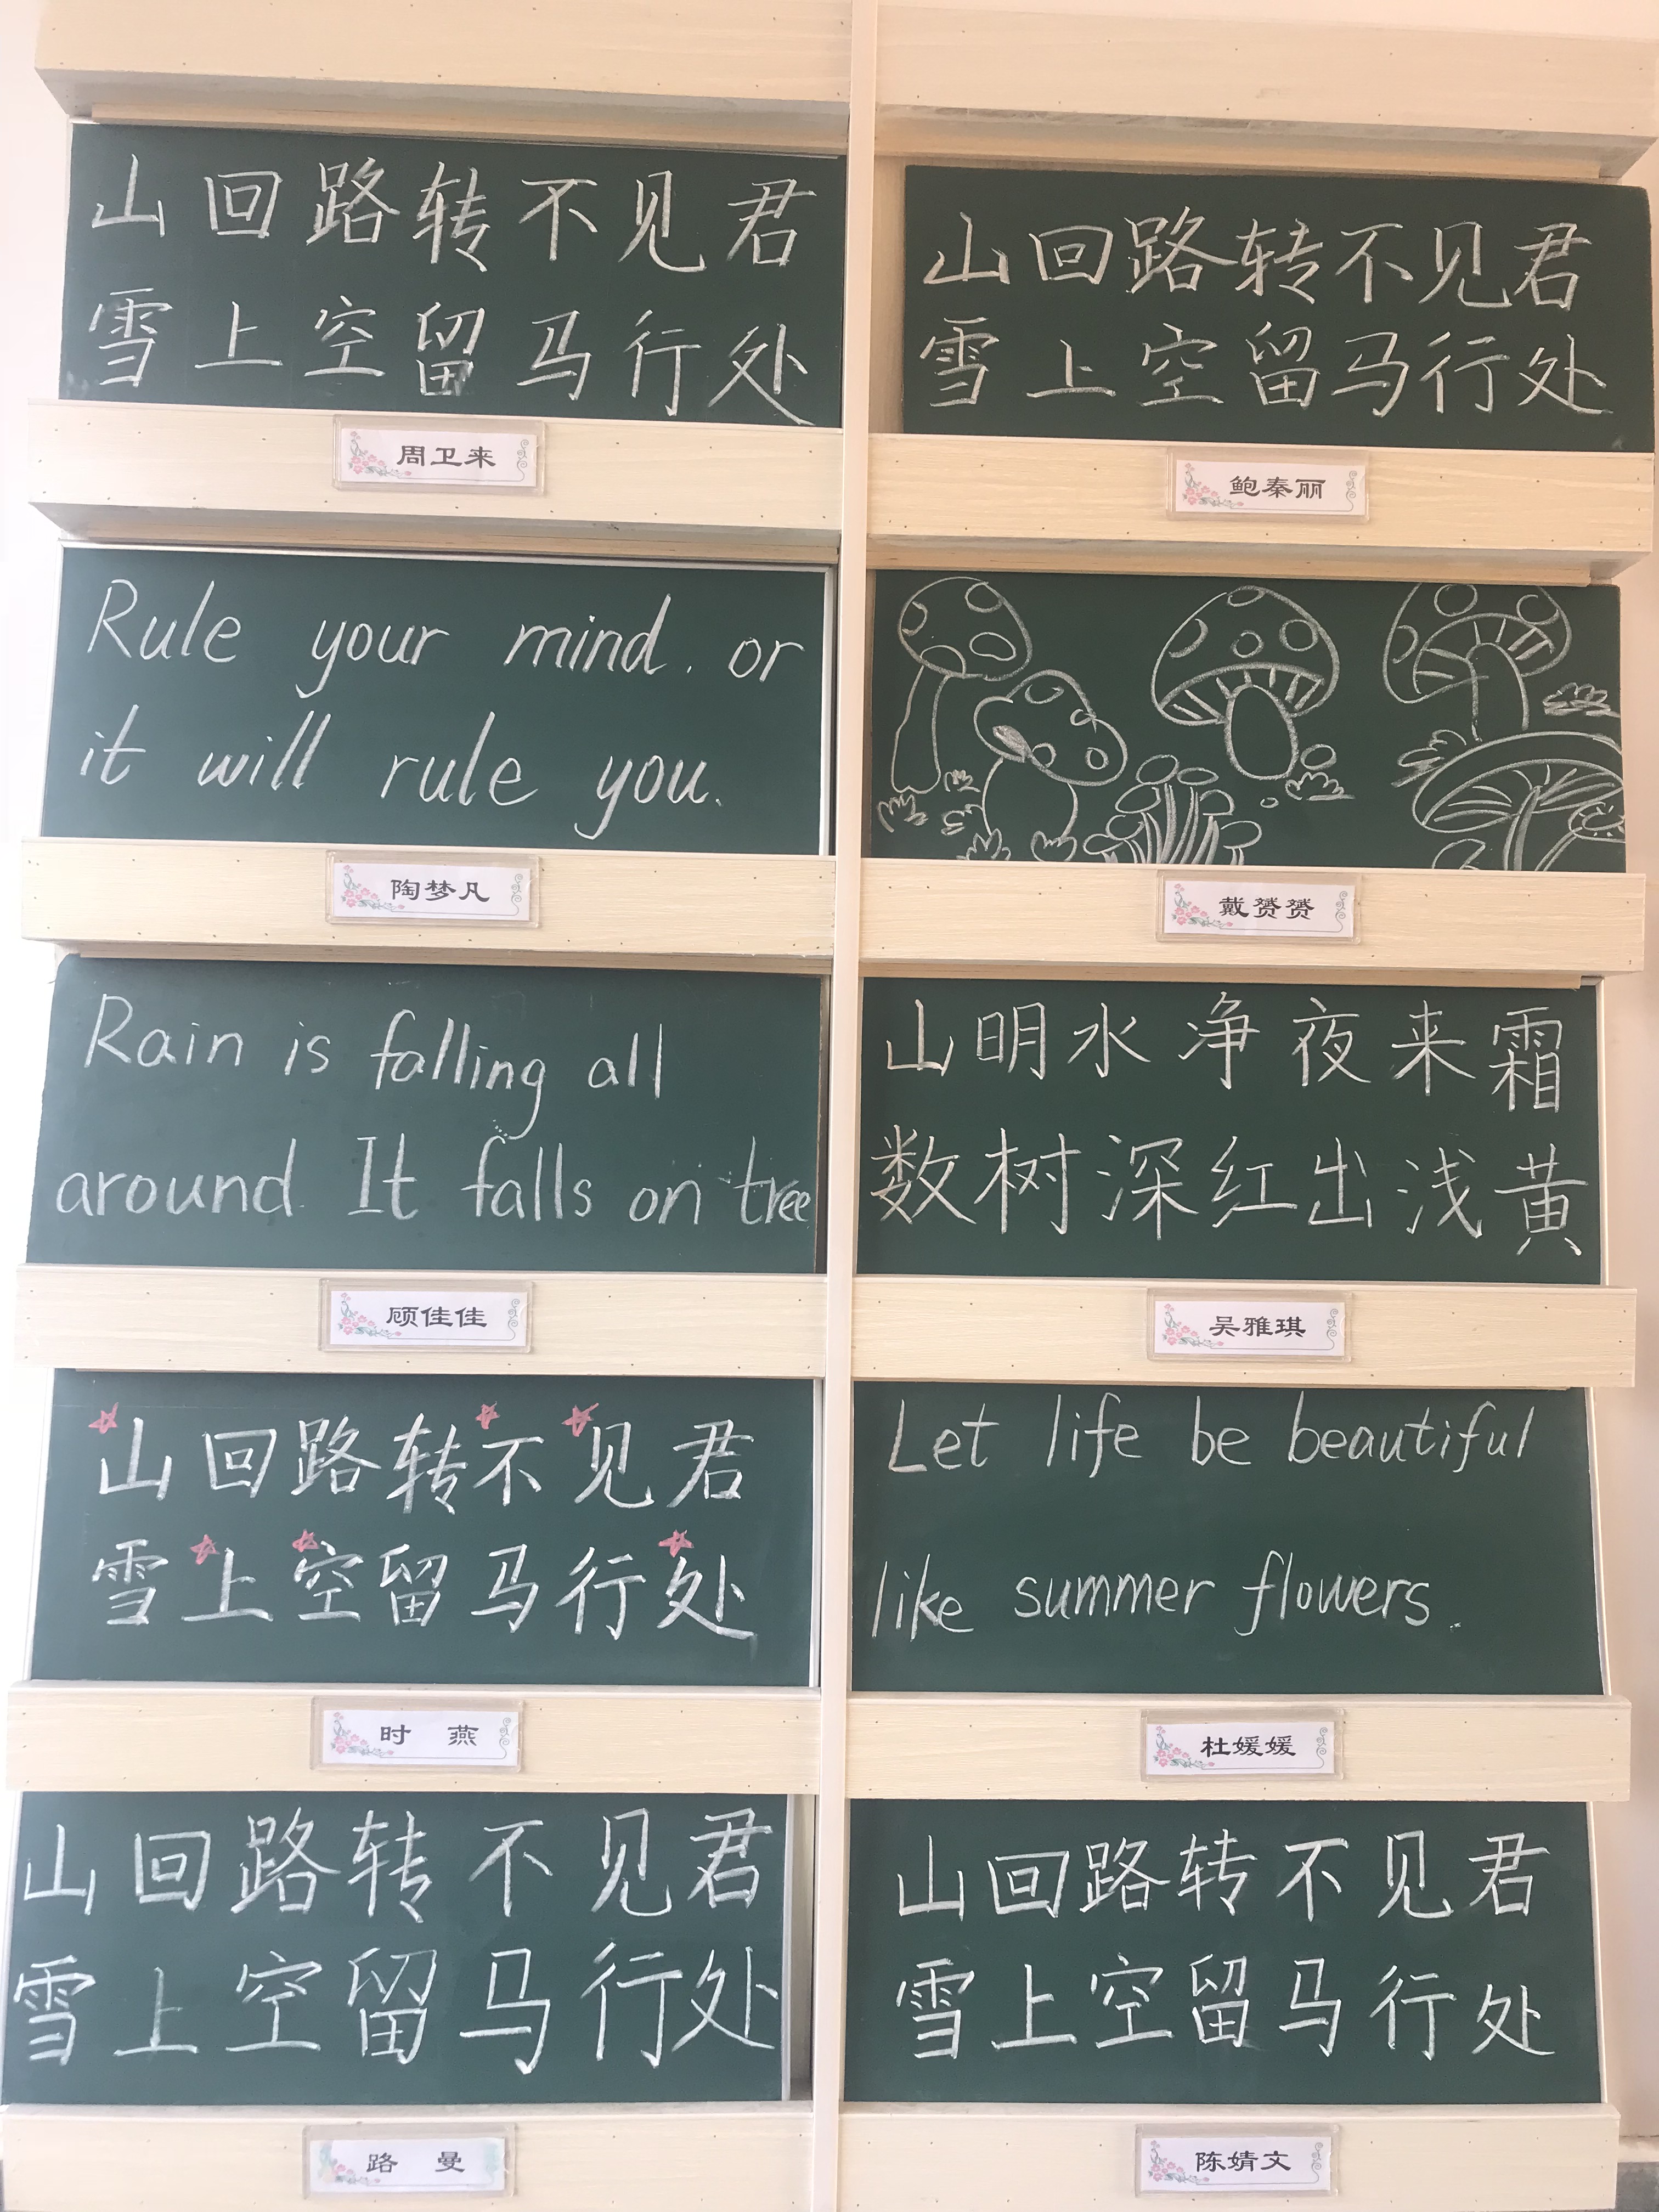 山回路转不见君
雪上空留马行处
周卫来
山回路转不见君
雪上空留马行处
鲍秦丽
Rule your mind. or
it will rule you.
陶梦凡
戴赟赟
Rain is falling all
around. It falls on tree
顾佳佳
山明水净夜来霜
数树深红出浅黄
吴雅琪
山回路转不见君
雪上空留马行处
时 燕
Let life be beautiful
like summer flowers.
杜媛媛
山回路转不见君
雪上空留马行处
路 曼
山回路转不见君
雪上空留马行处
陈婧文